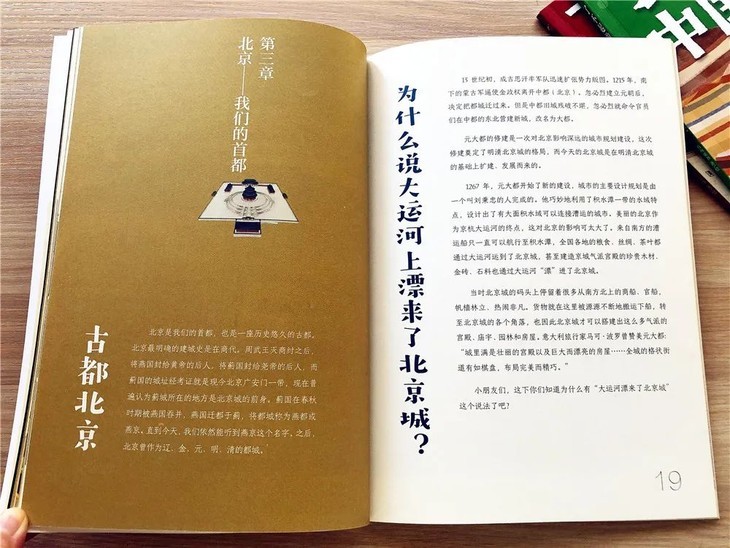 第三章
北京——我们的首都
古都北京
北京是我们的首都，也是一座历史悠久的古都。
北京最明确的建城史是在商代。周武王灭商纣之后，
将燕国封给黄帝的后人，将蓟国封给尧帝的后人，而
蓟国的城址经考证就是现今北京广安门一带，现在普
遍认为蓟城所在的地方是北京城的前身。蓟国在春秋
时期被燕国吞并，燕国迁都于蓟，将都城称为燕都或
燕京。直到今天，我们依然能听到燕京这个名字。之后，
北京曾作为辽、金、元、明、清的都城。
为什么说大运河上漂来了北京城？
15 世纪初，成吉思汗率军队迅速扩张势力版图。1215年，南
下的蒙古军逼使金政权离开中都（北京）。忽必烈建立元朝后，
决定把都城迁过来。但是中都旧城残破不堪，忽必烈就命令官员
们在中都的东北营建新城，改名为大都。
元大都的修建是一次对北京影响深远的城市规划建设，这次
修建奠定了明清北京城的格局，而今天的北京城是在明清北京城
的基础上扩建、发展而来的。
1267 年，元大都开始了新的建设，城市的主要设计规划是由
一个叫刘秉忠的人完成的。他巧妙地利用了积水潭一带的水域特
点，设计出了有大面积水域可以连接漕运的城市。美丽的北京作
为京杭大运河的终点，这对北京的影响可太大了。来自南方的漕
运船只一直可以航行至积水潭，全国各地的粮食、丝绸、茶叶都
通过大运河运到了北京城，甚至建造京城气派宫殿的珍贵木材、
金砖、石料也通过大运河“漂”进了北京城。
当时北京城的码头上停留着很多从南方北上的商船、官船，
帆樯林立、热闹非凡。货物就在这里被源源不断地搬运下船，转
至北京城的各个角落，也因此北京城才可以搭建出这么多气派的
宫殿、庙宇、园林和房屋。意大利旅行家马可·波罗曾赞美元大都：
“城里满是壮丽的宫殿以及巨大而漂亮的房屋……全城的格状街
道有如棋盘，布局完美而精巧。”
小朋友们，这下你们知道为什么有“大运河漂来了北京城”
这个说法了吧？
19
中